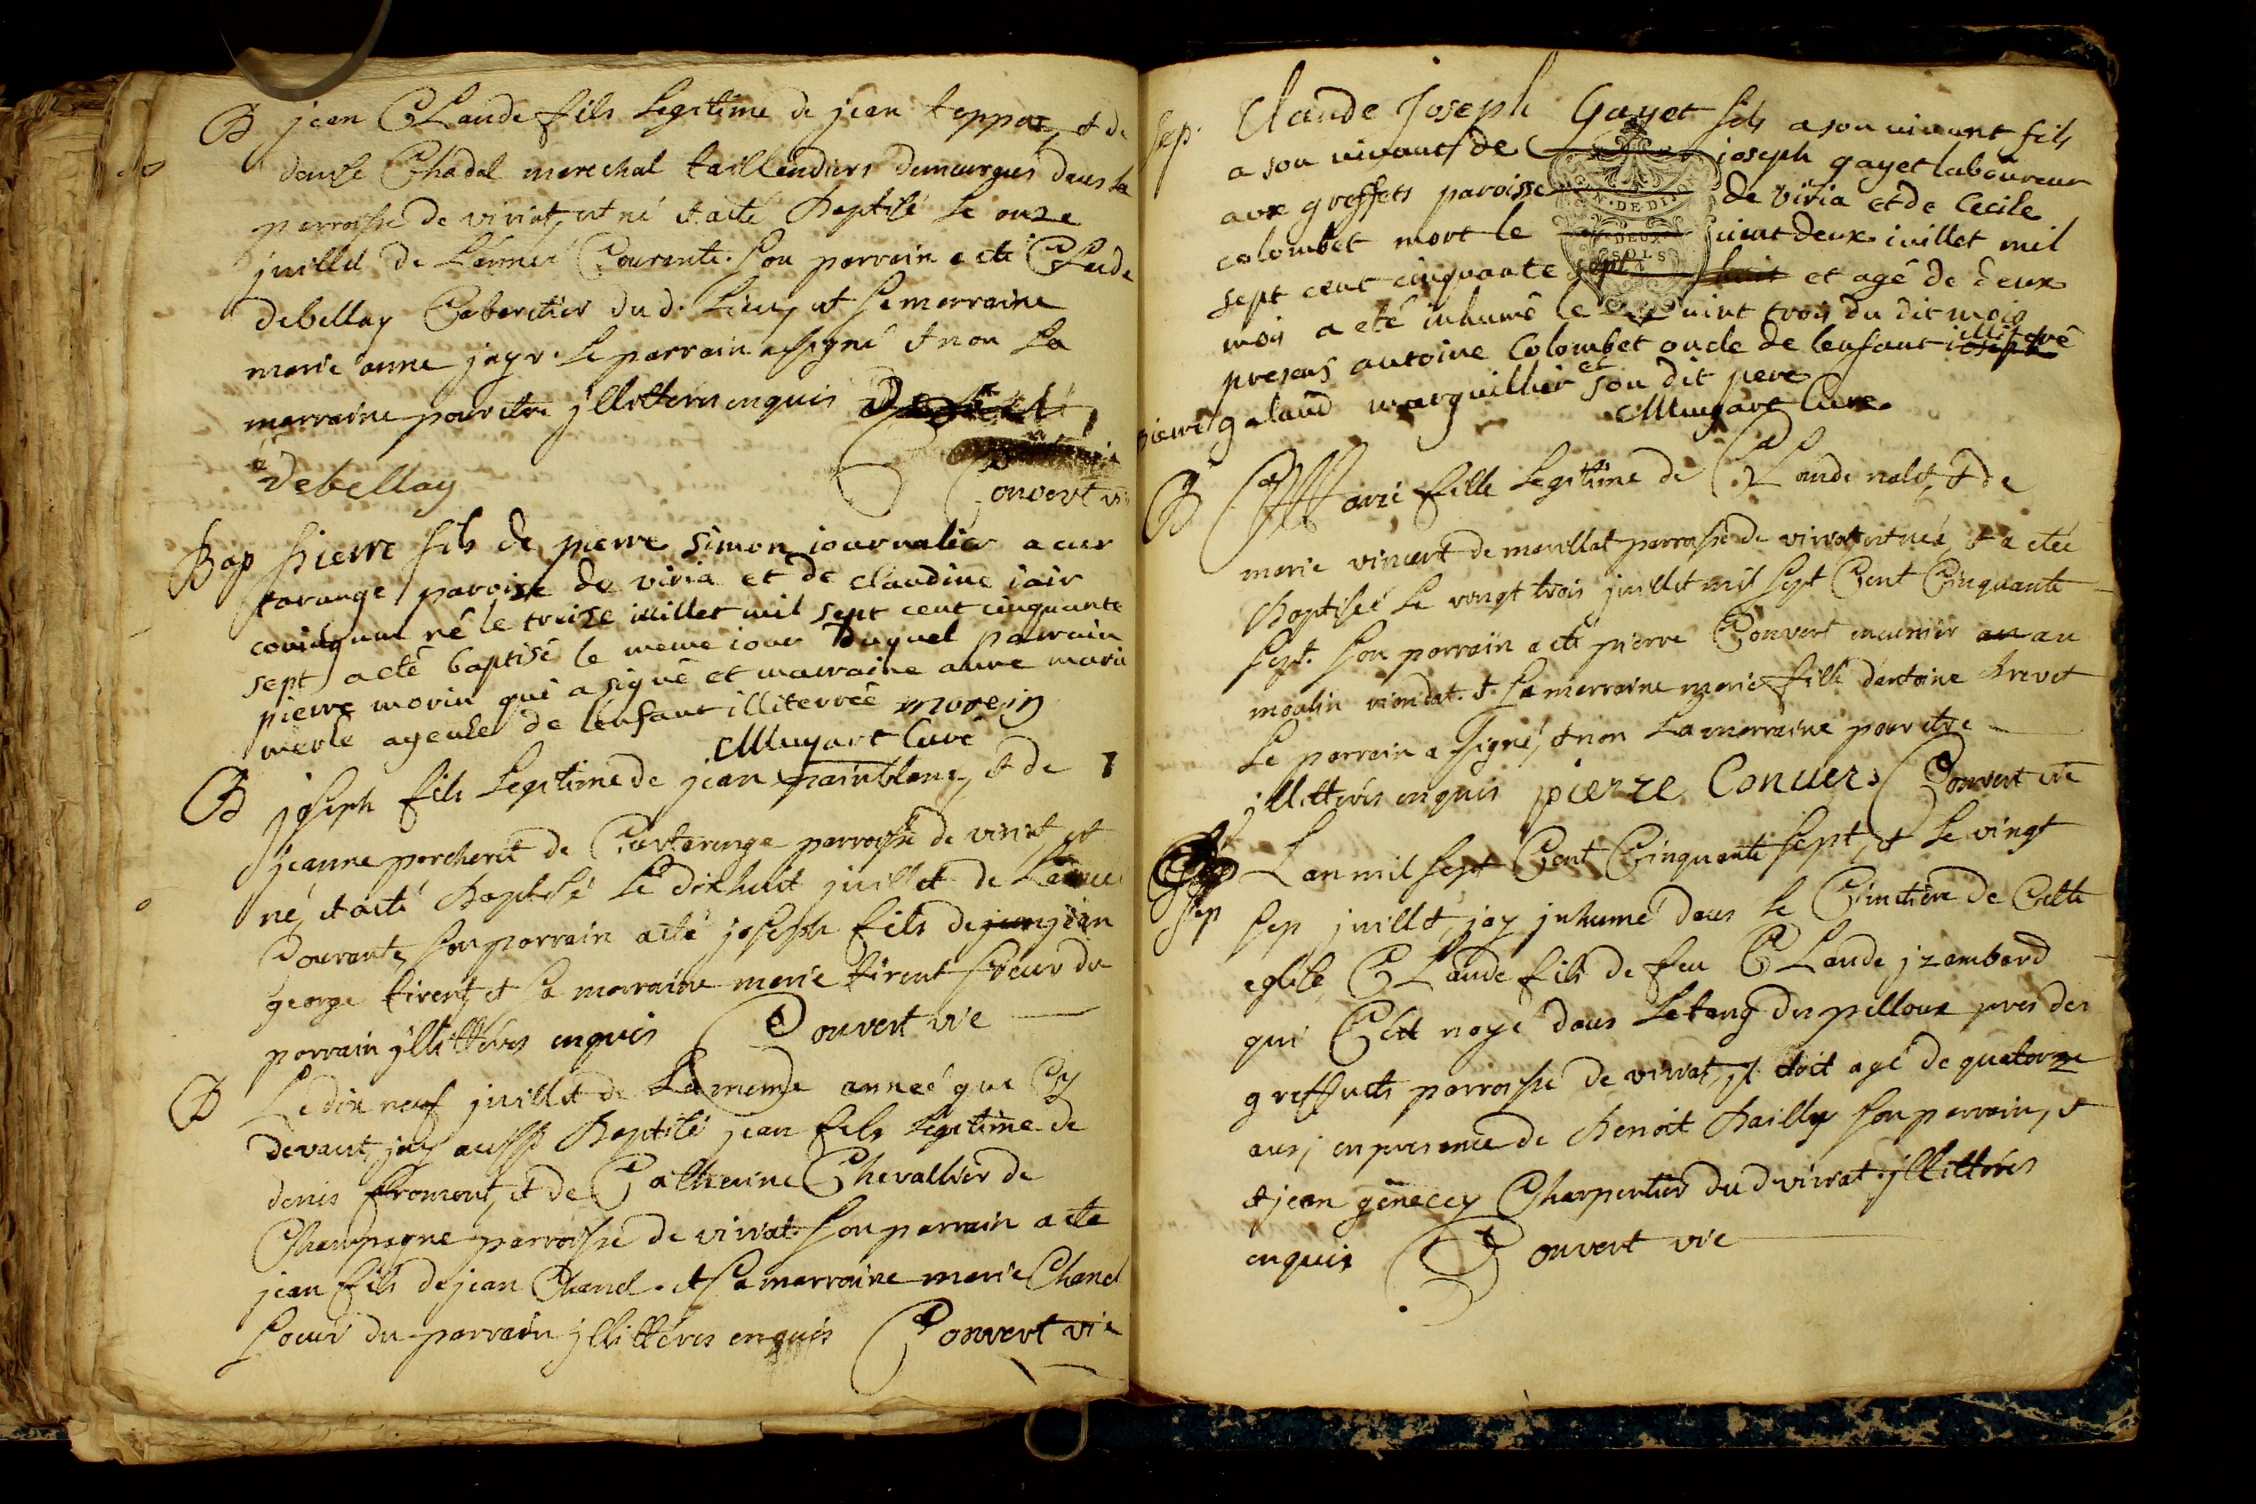 B jean CLaude fils Legitime de jean teppaz, et de
denise Chadal marechal taillendiers demeurants dans la
parroisse de viriat, est né et a eté baptisé Le onze
juillet de L'année Courante. son parrain a eté CLaude
debellay Cabaretier du d. Lieu, et sa marraine
marie anne jayr. Le parrain a signé et non La
marraine pour etre jllitterés enquis
debellay Convert vi
Bap pierre fils de pierre simon iournalier a cur
tarange paroisse de viria et de claudine iair
coniugum né le treise iuillet mil sept cent cinquante
sept a eté baptisé le meme iour duquel parrain
pierre morin qui a signé et marraine anne marie
merle ageule de lenfant illiterrée morein
Mugart Curé
B joseph fils Legitime de jean painblanc, et de
jeanne porcheret de Curtarenge parroisse de viriat, est
né, et a eté baptisé Le dixhuit juillet de L'année
Courante, son parrain a eté joseph fils de jean jean
george tirent, et sa marraine marie tirent soeur du
parrain jllittérés enquis Convert vie
B Le dix neuf juillet de La meme anneé que Cy
devant, jay aussy baptisé jean fils Legitime de
denis fromont, et de Catherine Chevallier de
Champagne parroisse de viriat. son parrain a eté
jean fils de jean Chanel. et sa marraine marie Chanel
soeur du parrain jllittérés enquis Convert vie
sep. Claude Joseph Gayet fils a son vivant fils
a son vivant de joseph gayet laboureur
aux greffets paroisse de viria et de Cecile
colombet mort le vint deux iuillet mil
sept cent cinquante sept huit et agé de deux
mois a eté inhumé le vint trois du dit mois
presens antoine Colombet oncle de lenfant illiteré
pierre galand marguillier et son dit pere
Mugart Cure
B Marie fille Legitime de CLaude nalet, et de
marie vincent de marillat parroisse de viriat est née, et a eteé
baptiseé Le vingt trois juillet mil sept Cent Cinquante
sept. son parrain a eté pierre Convert meunier au au
moulin riondat. et sa marraine marie fille d'antoine brevet
Le parrain a signé, et non La marraine pour etre
jllittérés enquis pierre Convers Convert vie
Sep L'an mil sept Cent Cinquante sept, et Le vingt
sep juillet, jay jnhumé dans Le Cimetiere de Cette
eglise CLaude fils de feu CLaude jzambard
qui C'est noyé dans L'etang des pelloux pres des
greffets parroisse de viriat, jl etoit agé de quatorze
ans, en presence de benoit bailly son parrain, et
et jean genecey Charpentier du d viriat. jllittérés
enquis Convert vie